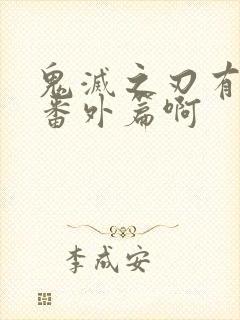 鬼滅之刃有
番外篇啊
李成安